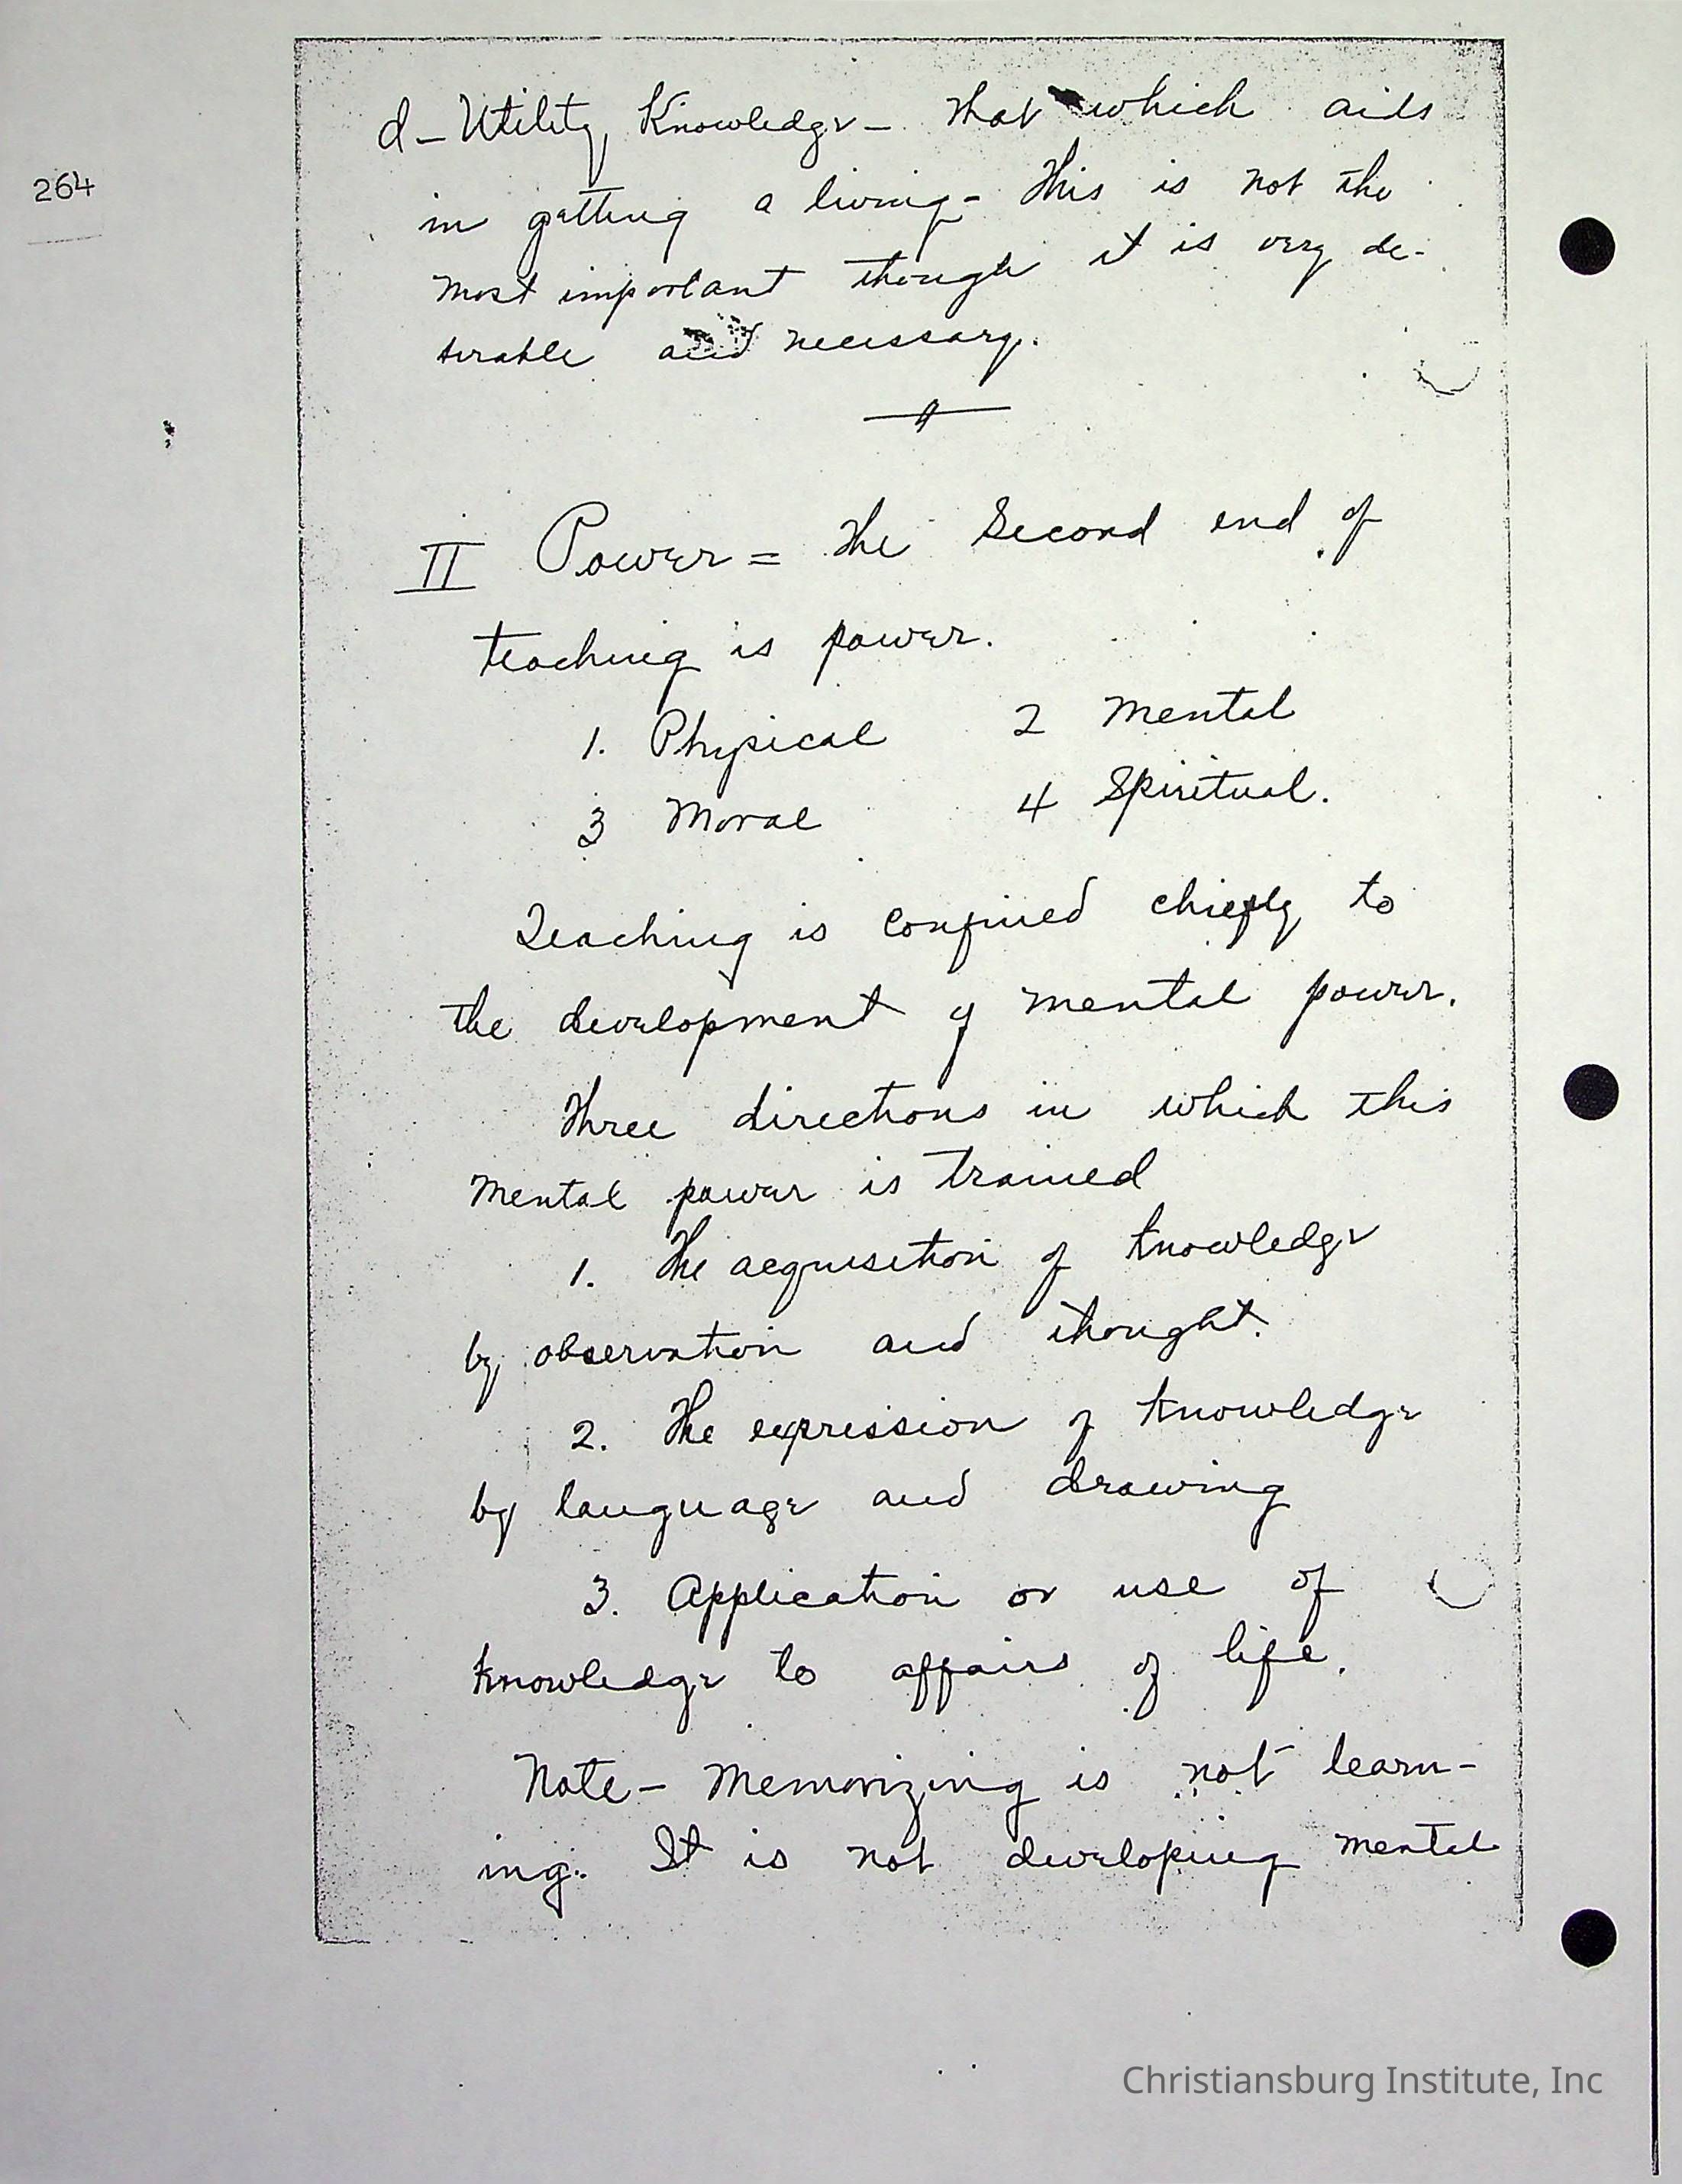 264
d – Utility Knowledge – That which aids
in getting a living – This is not the
most important though it is very de-
sirable and necessary.
II Power = The Second end of
teaching is power.
1. Physical 2 Mental
3 Moral 4 Spiritual.
Teaching is confined chiefly to
the development of mental power.
Three directions in which this
mental power is trained
1. The acquisition of knowledge
by observation and thought.
2. The expression of knowledge
by language and drawing
3. Application or use of
knowledge to affairs of life.
Note – Memorizing is not learn-
ing. It is not developing mental
Christiansburg Institute, Inc